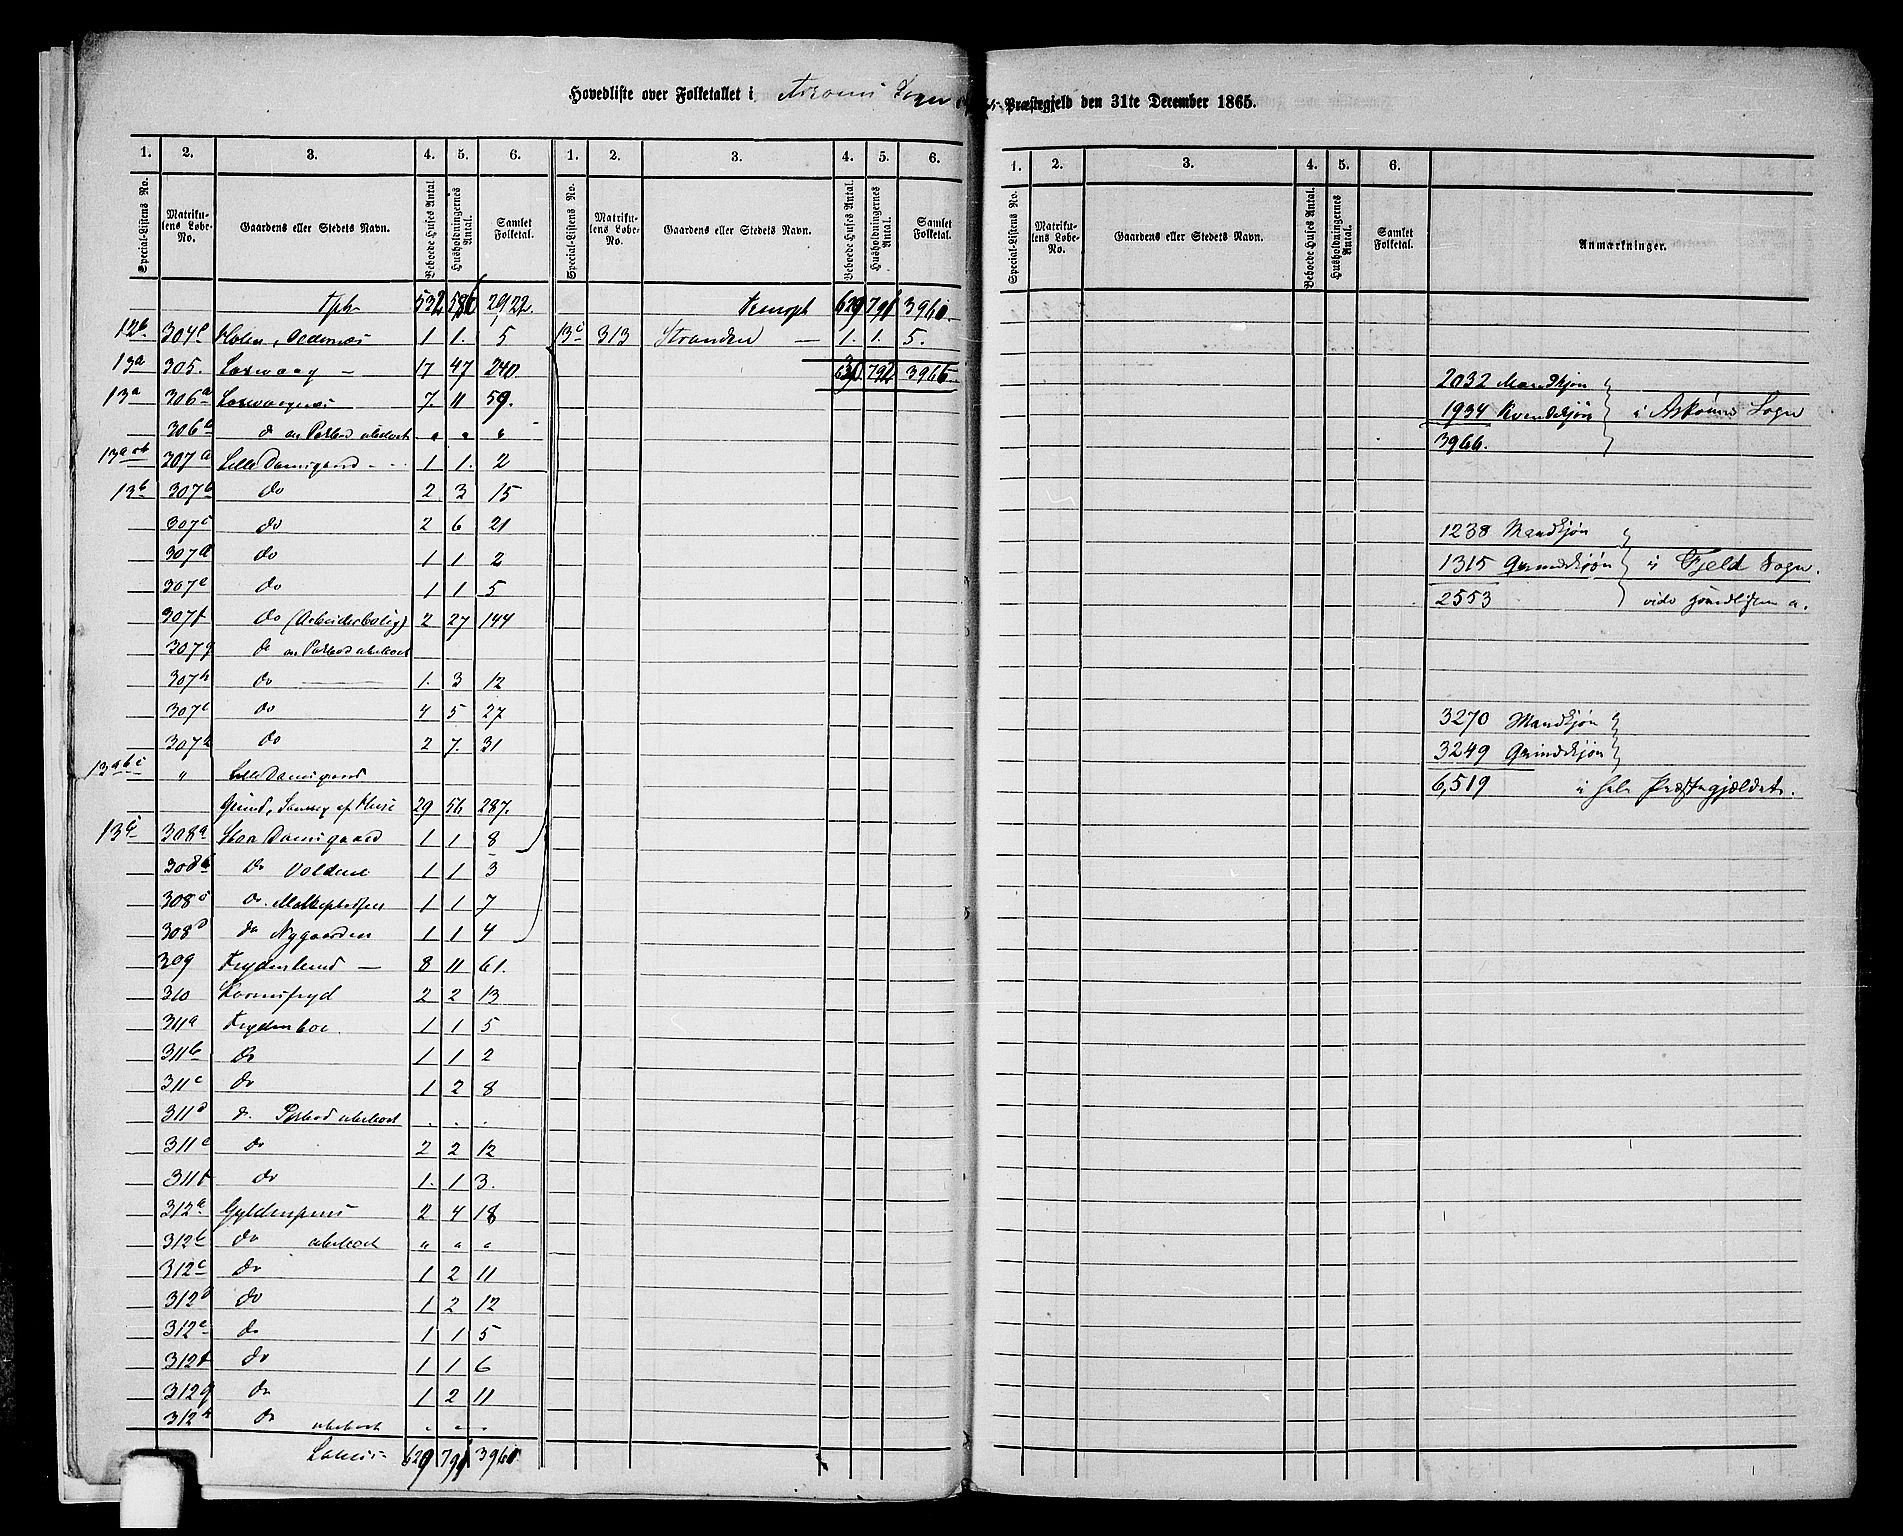 Hovedliste over Folketallet i Askøens Sogn Præstegjeld den 31te December 1865.
1. 2. 3. 4. 5. 6. 1. 2. 3. 4. 5. 6. 1. 2. 3. 4. 5. 6.
Special-Listens No. Matrikulens Løbe-No. Gaardens eller Stedets Navn. Beboede Huses Antal Husholdningernes Antal. Samlet Folketal. Special-Listens No. Matrikulens Løbe-No. Gaardens eller Stedets Navn. Beboede Huses Antal. Husholdningernes Antal. Samlet Folketal. Special-Listens No. Matrikulens Løbe-No. Gaardens eller Stedets Navn. Beboede Huses Antal. Husholdningernes Antal. Samlet Folketal. Anmærkninger.
532 586 2922. Transpt 629 791 3961
12b 304e Holen, 1 1. 5 13c 313 Stranden — 1. 1. 5.
13a 305. Laxevaag — 17 47 240 630 792 3966
13a 306a Laxevaagnæs 7. 11 59.
306b do
13a ob 307a Lille Damsgaard 1 1. 2
13b 307b do 2 3 15
307c do 2 6 21
307d do 1 1 2
307e do 1 1 5
307f do (Arbeiderbolig) 2 27 144
307g do
307h do 1. 3 12
307i do 4 5. 27
307k do 2 7. 31
13abc " Lille Damsgaard
Grund, Samling af Huse 29 56 287.
13c 308a Store Damsgaard 1 1 8
308b do Voldene 1 1 3
308c do 1 1 7
308d do Nygaarden 1 1 4
309 Frydenlund — 8 11 61.
310 Karmsfryd 2 2 13
311a Frydenboe. 1 1 5
311b do 1 1 2
311c do 1 2 8
311d do
311e do 2 2 12
311f do 1. 1 3.
312a Gyldenpriis 2 4 18
312b do ubeboet " " "
312c do 1 2 11
312d do 1 2 12
312e do 1 1 5
312f do 1 1 6
312g do 1 2 11
312h do ubeboet
Lateris 629 791 3961
2032 Mandkjøn
1934 Kvindekjøn i Askøens Sogn
3966.
1238 Mandkjøn
1315 Qvindekjøn i Fjeld Sogn.
2553 vide
3270 Mandkjøn
3249 Qvindekjøn
6,519 i hele Præstegjeldet.